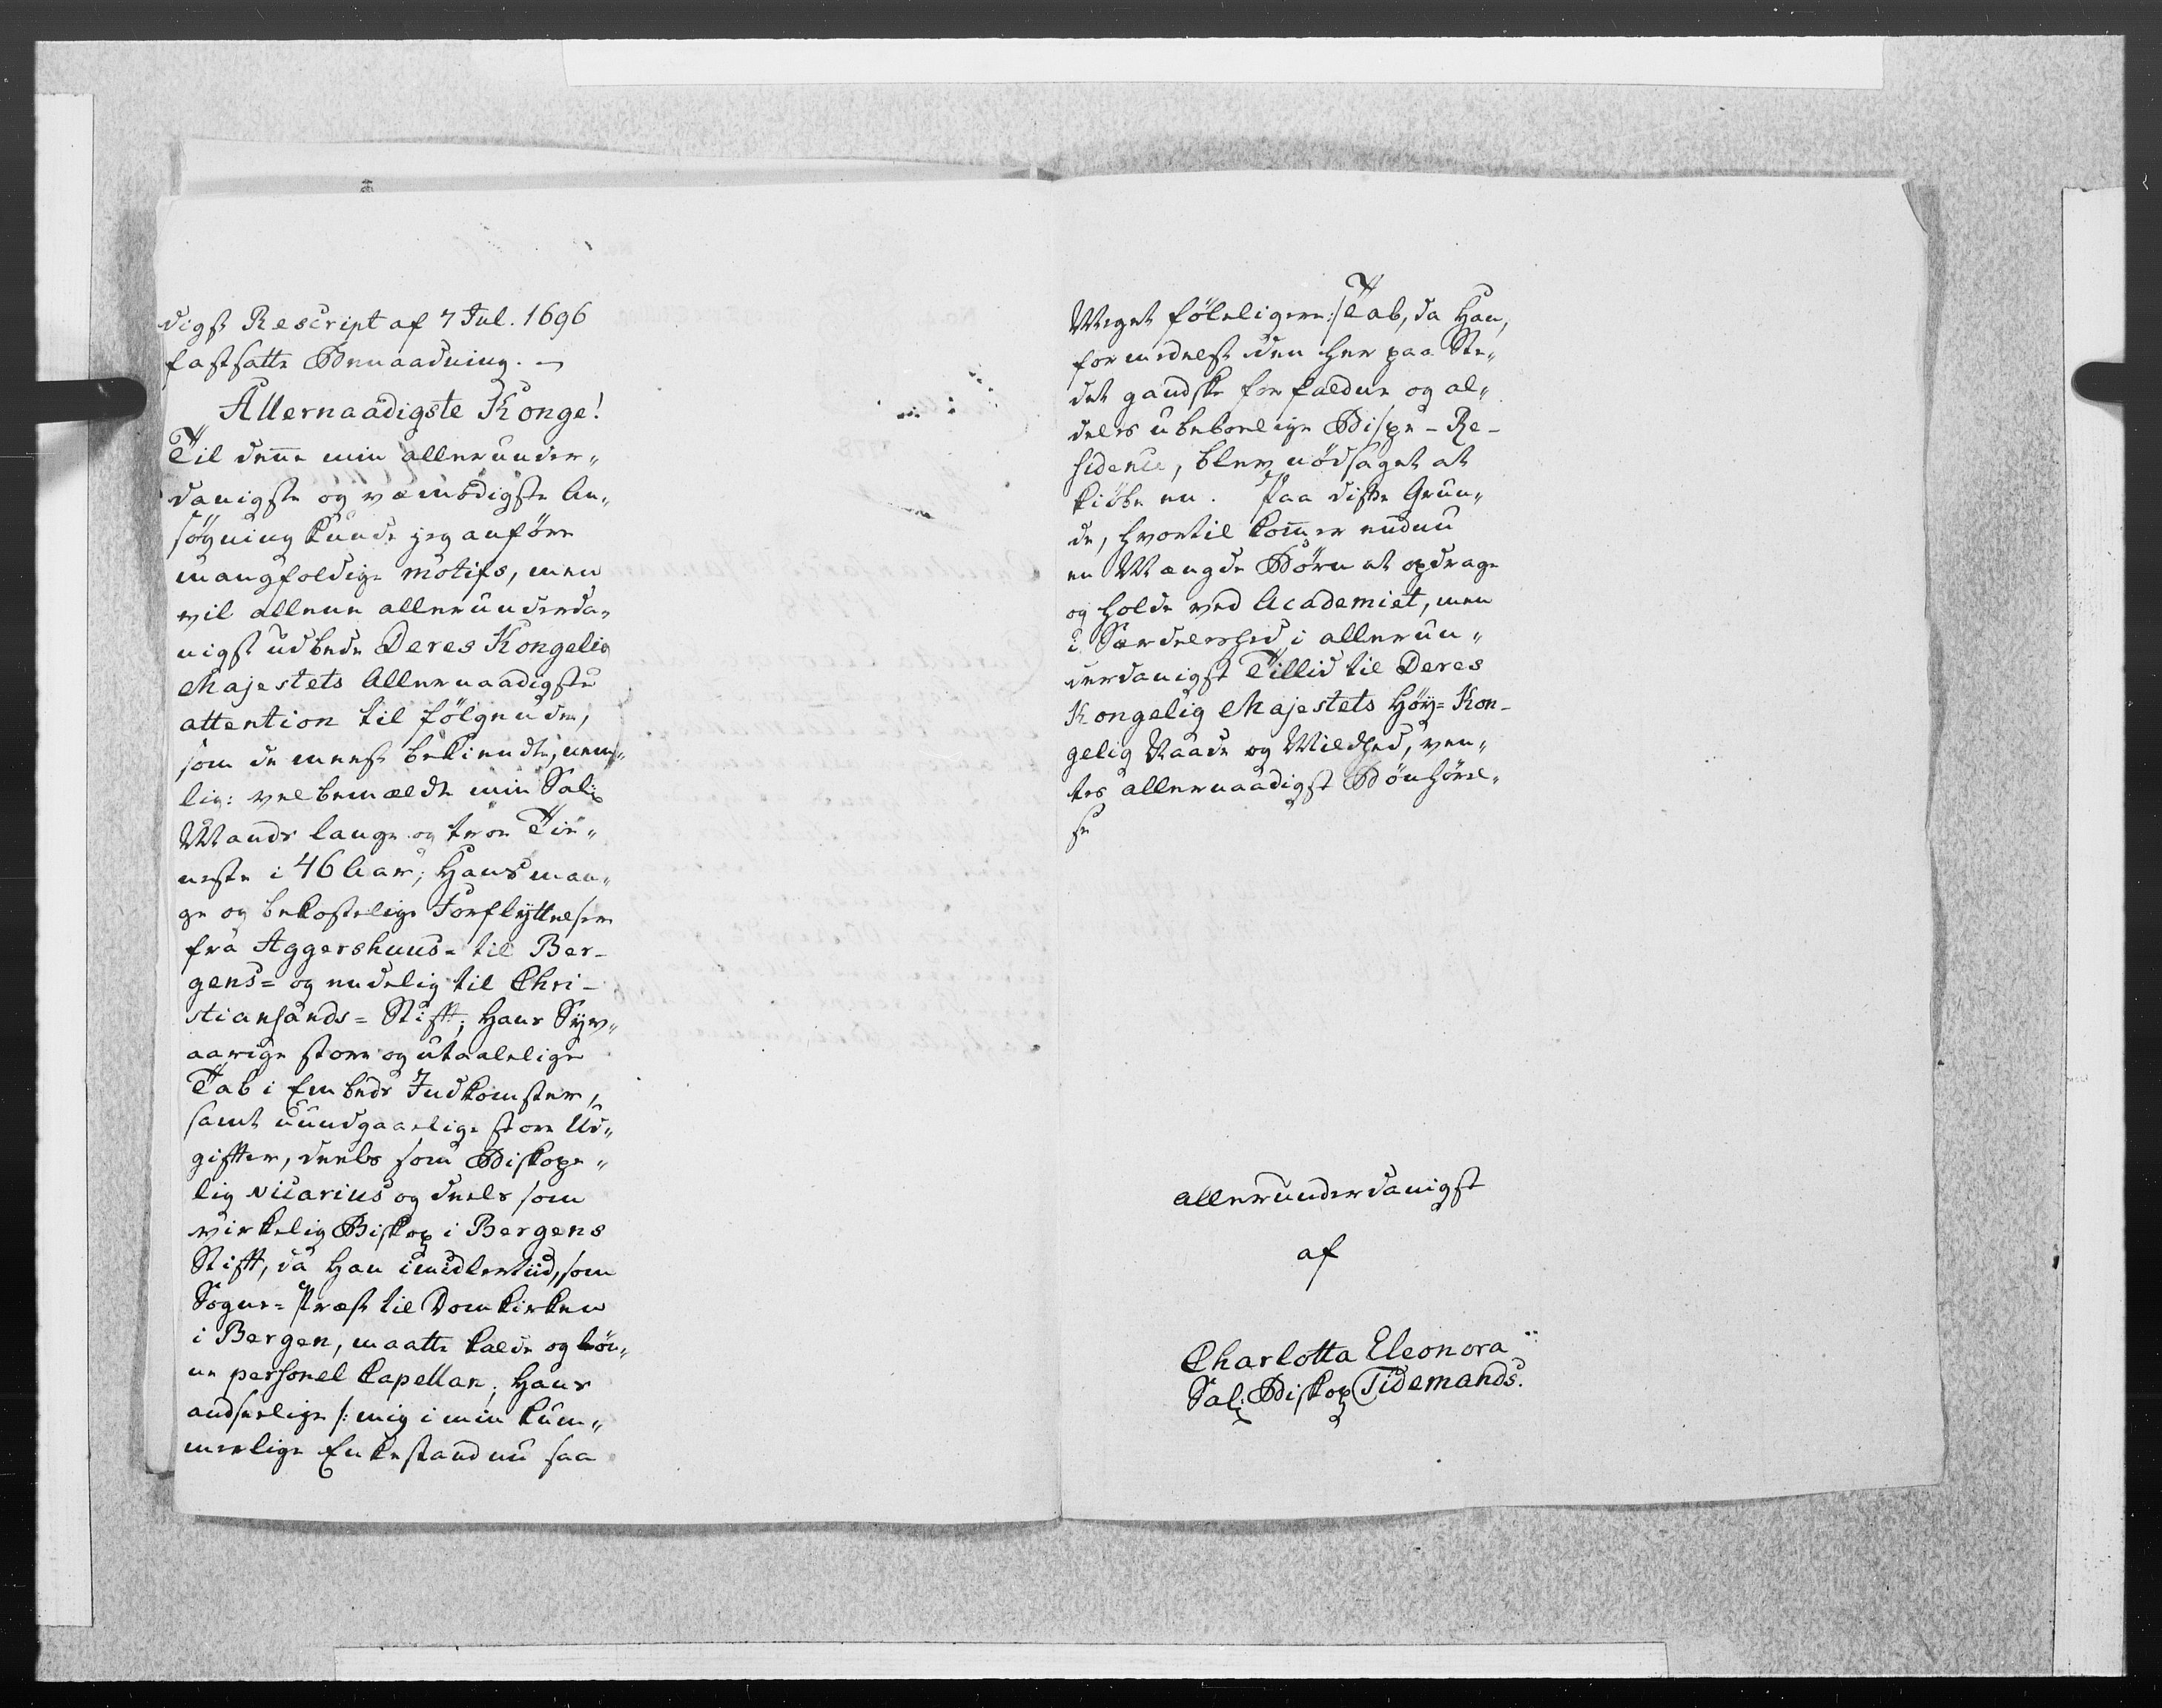 digst Rescript af 7 Jul. 1696
fastsatte Benaadning. –
Allernaadigste Konge!
Til denne min allerunder„
danigste og væmodigste An„
søgning kunde jeg anføre
mangfoldige motifs, men
vil allene allerunderda„
nigst udbede Deres Kongelig
Majestets Allernaadigste
attention til følgende,
som de meest bekiendte, nem„
lig: velbemældte min Sal:
Mands lange og troe Tie„
neste i 46 Aar; Hans man„
ge og bekostelige Forflyttelser
fra Aggershuus- til Ber-
gens= og endelig til Chri-
stiansands= Stift; Hans Syv„
aarige store og utaalelige
Tab i Embeds Indkomster,
samt uundgaaelige store Ud„
gifter, deels som Biskope„
lig vicarius og deels som
virkelig Biskop i Bergens
Stift, da Han imidlertiid, som
Sogne= Præst til Domkirken
i Bergen, maatte kalde og løn„
ne personel Capellan; Hans
andseelige /: mig i min kum„
merlige Enkestand nu saa
Meget føleligere :/ Tab, da Han,
formedelst den her paa Ste„
det gandske forfaldne og al„
deles ubeboelige Bispe-Re-
sidence, blev nødsaget at
kiøbe en. Paa disse Grun„
de, hvortil kommer endnu
en Mængde Børn at opdrage
og holde ved Academiet, men
i Særdeleshed i allerun„
derdanigst Tillid til Deres
Kongelig Majestets Høy= Kon-
gelig Naade og Mildhed, ven„
tes allernaadigst Bønhørel„
se
allerunderdanigst
af
Charlotta Eleonora
Sal: Biskop Tidemands.